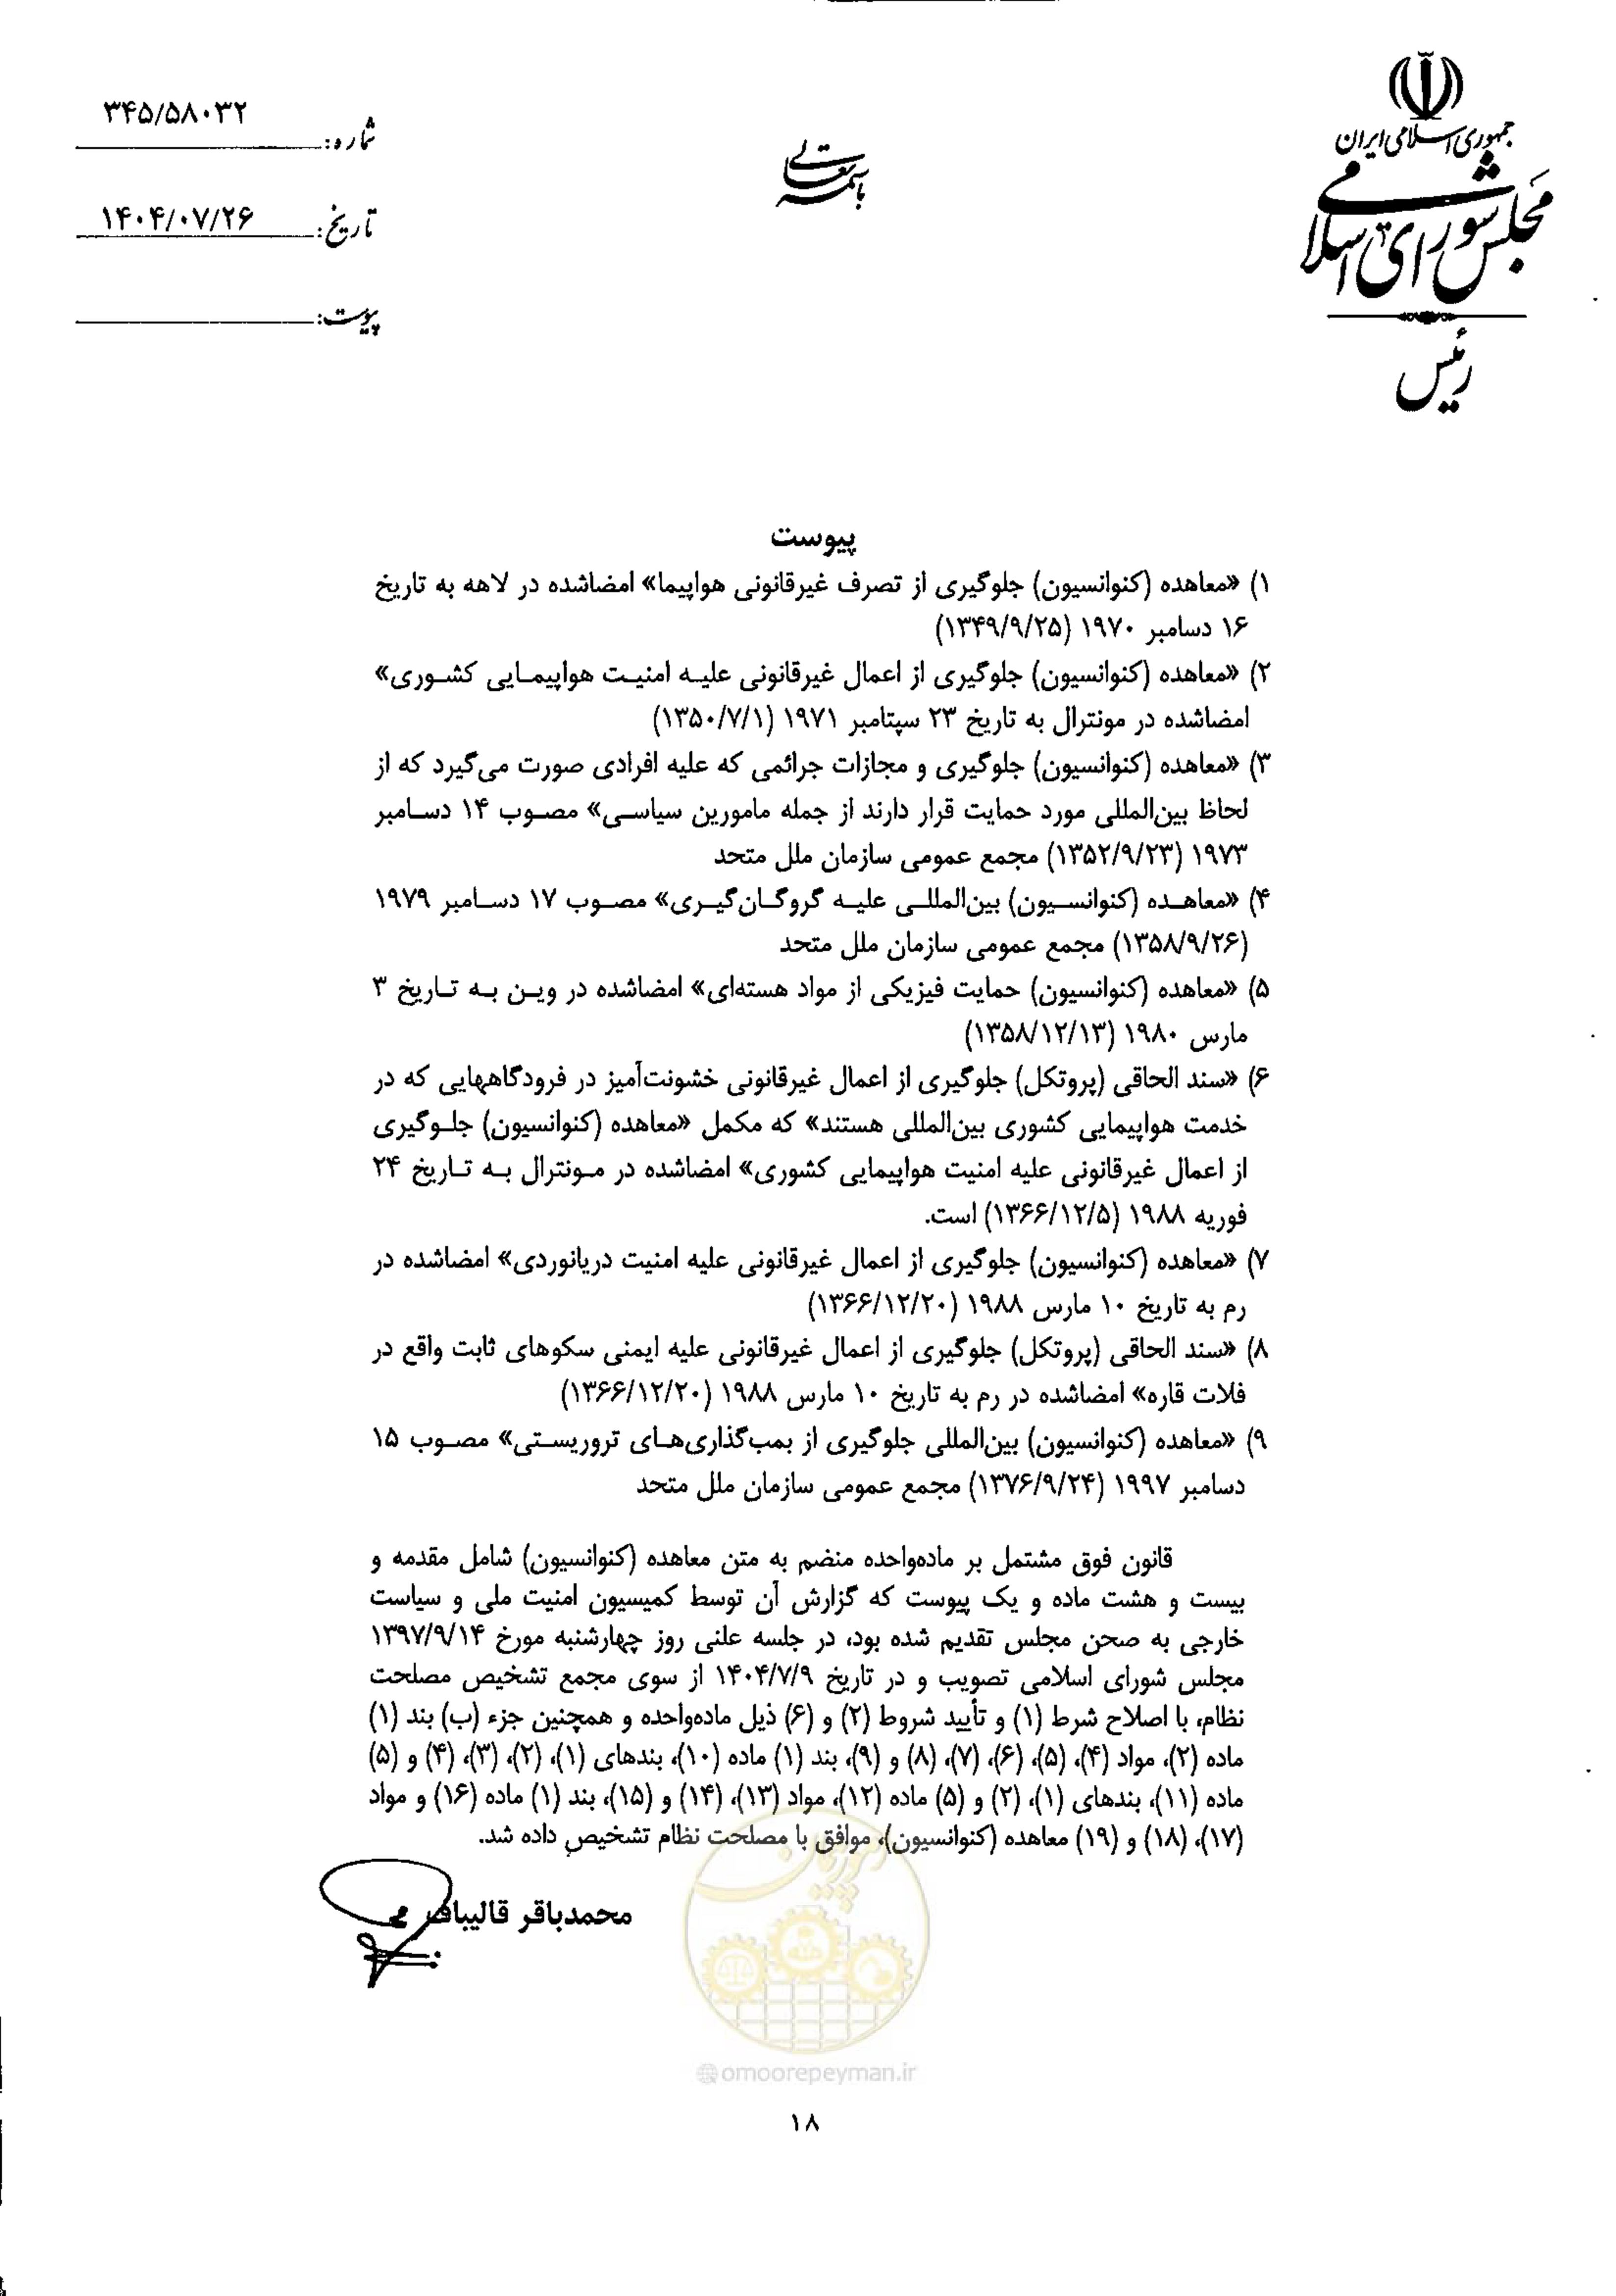 جمهوری اسلامی ایران
مجلس شورای اسلامی
رئیس
باسمه تعالی
شماره: ۳۴۵/۵۸۰۳۲
تاریخ: ۱۴۰۴/۰۷/۲۶
پیوست:
پیوست
۱) «معاهده (کنوانسیون) جلوگیری از تصرف غیرقانونی هواپیما» امضاشده در لاهه به تاریخ
۱۶ دسامبر ۱۹۷۰ (۱۳۴۹/۹/۲۵)
۲) «معاهده (کنوانسیون) جلوگیری از اعمال غیرقانونی علیه امنیت هواپیمایی کشوری»
امضاشده در مونترال به تاریخ ۲۳ سپتامبر ۱۹۷۱ (۱۳۵۰/۷/۱)
۳) «معاهده (کنوانسیون) جلوگیری و مجازات جرائمی که علیه افرادی صورت می‌گیرد که از
لحاظ بین‌المللی مورد حمایت قرار دارند از جمله مامورین سیاسی» مصوب ۱۴ دسامبر
۱۹۷۳ (۱۳۵۲/۹/۲۳) مجمع عمومی سازمان ملل متحد
۴) «معاهده (کنوانسیون) بین‌المللی علیه گروگان‌گیری» مصوب ۱۷ دسامبر ۱۹۷۹
(۱۳۵۸/۹/۲۶) مجمع عمومی سازمان ملل متحد
۵) «معاهده (کنوانسیون) حمایت فیزیکی از مواد هسته‌ای» امضاشده در وین به تاریخ ۳
مارس ۱۹۸۰ (۱۳۵۸/۱۲/۱۳)
۶) «سند الحاقی (پروتکل) جلوگیری از اعمال غیرقانونی خشونت‌آمیز در فرودگاههایی که در
خدمت هواپیمایی کشوری بین‌المللی هستند» که مکمل «معاهده (کنوانسیون) جلوگیری
از اعمال غیرقانونی علیه امنیت هواپیمایی کشوری» امضاشده در مونترال به تاریخ ۲۴
فوریه ۱۹۸۸ (۱۳۶۶/۱۲/۵) است.
۷) «معاهده (کنوانسیون) جلوگیری از اعمال غیرقانونی علیه امنیت دریانوردی» امضاشده در
رم به تاریخ ۱۰ مارس ۱۹۸۸ (۱۳۶۶/۱۲/۲۰)
۸) «سند الحاقی (پروتکل) جلوگیری از اعمال غیرقانونی علیه ایمنی سکوهای ثابت واقع در
فلات قاره» امضاشده در رم به تاریخ ۱۰ مارس ۱۹۸۸ (۱۳۶۶/۱۲/۲۰)
۹) «معاهده (کنوانسیون) بین‌المللی جلوگیری از بمب‌گذاری‌های تروریستی» مصوب ۱۵
دسامبر ۱۹۹۷ (۱۳۷۶/۹/۲۴) مجمع عمومی سازمان ملل متحد
قانون فوق مشتمل بر ماده‌واحده منضم به متن معاهده (کنوانسیون) شامل مقدمه و
بیست و هشت ماده و یک پیوست که گزارش آن توسط کمیسیون امنیت ملی و سیاست
خارجی به صحن مجلس تقدیم شده بود، در جلسه علنی روز چهارشنبه مورخ ۱۳۹۷/۹/۱۴
مجلس شورای اسلامی تصویب و در تاریخ ۱۴۰۴/۷/۹ از سوی مجمع تشخیص مصلحت
نظام، با اصلاح شرط (۱) و تأیید شروط (۲) و (۶) ذیل ماده‌واحده و همچنین جزء (ب) بند (۱)
ماده (۲)، مواد (۴)، (۵)، (۶)، (۷)، (۸) و (۹)، بند (۱) ماده (۱۰)، بندهای (۱)، (۲)، (۳)، (۴) و (۵)
ماده (۱۱)، بندهای (۱)، (۲) و (۵) ماده (۱۲)، مواد (۱۳)، (۱۴) و (۱۵)، بند (۱) ماده (۱۶) و مواد
(۱۷)، (۱۸) و (۱۹) معاهده (کنوانسیون)، موافق با مصلحت نظام تشخیص داده شد.
محمدباقر قالیباف
امور پیمان
@omoorepeyman.ir
۱۸